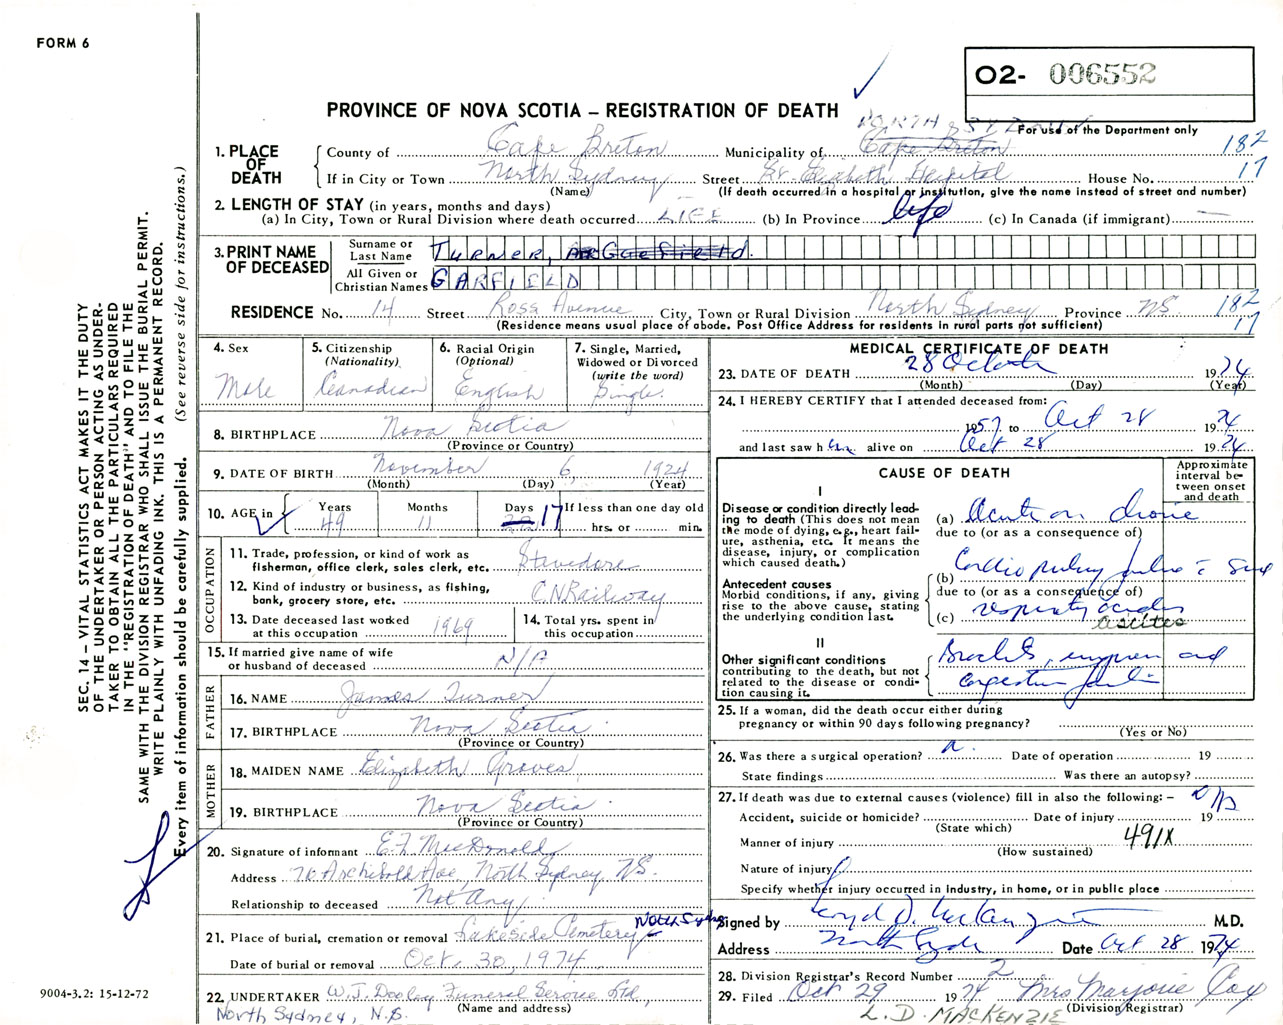 FORM 6
O2- 006552
PROVINCE OF NOVA SCOTIA – REGISTRATION OF DEATH
For use of the Department only
NORTH SYDNEY
182
17
1. PLACE OF DEATH
County of Cape Breton Municipality of Cape Breton
If in City or Town North Sydney Street St. Elizabeth Hospital House No.
(Name) (If death occurred in a hospital or institution, give the name instead of street and number)
2. LENGTH OF STAY (in years, months and days)
(a) In City, Town or Rural Division where death occurred LIFE (b) In Province life (c) In Canada (if immigrant) —
3. PRINT NAME OF DECEASED
Surname or Last Name TURNER, Garfield.
All Given or Christian Names GARFIELD
RESIDENCE No. 14 Street Ross Avenue City, Town or Rural Division North Sydney Province NS 182
17
(Residence means usual place of abode. Post Office Address for residents in rural parts not sufficient)
4. Sex
Male
5. Citizenship (Nationality)
Canadian
6. Racial Origin (Optional)
English
7. Single, Married, Widowed or Divorced (write the word)
Single.
8. BIRTHPLACE Nova Scotia
(Province or Country)
9. DATE OF BIRTH November 6, 1924
(Month) (Day) (Year)
10. AGE in Years 49 Months 11 Days 17 If less than one day old
hrs. or min.
OCCUPATION
11. Trade, profession, or kind of work as fisherman, office clerk, sales clerk, etc. Stevedore
12. Kind of industry or business, as fishing, bank, grocery store, etc. C.N.Railway
13. Date deceased last worked at this occupation 1969
14. Total yrs. spent in this occupation
15. If married give name of wife or husband of deceased N/A
FATHER
16. NAME James Turner
17. BIRTHPLACE Nova Scotia
(Province or Country)
MOTHER
18. MAIDEN NAME Elizabeth Groves
19. BIRTHPLACE Nova Scotia
(Province or Country)
20. Signature of informant E.F. MacDonald
Address 70 Archibald Ave, North Sydney, NS.
Relationship to deceased Not Any
21. Place of burial, cremation or removal Lakeside Cemetery North Sydney
Date of burial or removal Oct. 30, 1974
22. UNDERTAKER W.J. Dooley Funeral Service Ltd,
(Name and address)
North Sydney, N.S.
MEDICAL CERTIFICATE OF DEATH
23. DATE OF DEATH 28 October 1974
(Month) (Day) (Year)
24. I HEREBY CERTIFY that I attended deceased from:
1957 to Oct 28 1974
and last saw him alive on Oct 28 1974
CAUSE OF DEATH
Approximate interval between onset and death
I
Disease or condition directly leading to death (This does not mean the mode of dying, e.g., heart failure, asthenia, etc. It means the disease, injury, or complication which caused death.)
(a) Acute on chronic
due to (or as a consequence of)
Antecedent causes
Morbid conditions, if any, giving rise to the above cause, stating the underlying condition last.
(b) Cardio pulmonary failure
due to (or as a consequence of)
(c) respiratory acidosis
ascites
II
Other significant conditions contributing to the death, but not related to the disease or condition causing it.
Bronchitis, emphysema and
congestive failure
25. If a woman, did the death occur either during pregnancy or within 90 days following pregnancy?
(Yes or No)
26. Was there a surgical operation? Date of operation 19
State findings Was there an autopsy?
27. If death was due to external causes (violence) fill in also the following: – n/a
Accident, suicide or homicide? Date of injury 19
(State which)
Manner of injury 491X
(How sustained)
Nature of injury
Specify whether injury occurred in Industry, in home, or in public place
Signed by Lloyd D. MacKenzie M.D.
Address North Sydney Date Oct 28 1974
28. Division Registrar's Record Number 2
29. Filed Oct 29 1974 Mrs Marjorie Cox
(Division Registrar)
L. D. MACKENZIE
SEC. 14 – VITAL STATISTICS ACT MAKES IT THE DUTY
OF THE UNDERTAKER OR PERSON ACTING AS UNDER-
TAKER TO OBTAIN ALL THE PARTICULARS REQUIRED
IN THE "REGISTRATION OF DEATH" AND TO FILE THE
SAME WITH THE DIVISION REGISTRAR WHO SHALL ISSUE THE BURIAL PERMIT.
WRITE PLAINLY WITH UNFADING INK. THIS IS A PERMANENT RECORD.
Every item of information should be carefully supplied. (See reverse side for instructions.)
9004-3.2: 15-12-72